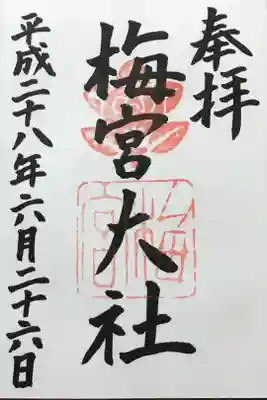 奉拝
梅宮大社
梅宮
平成二十八年六月二十六日